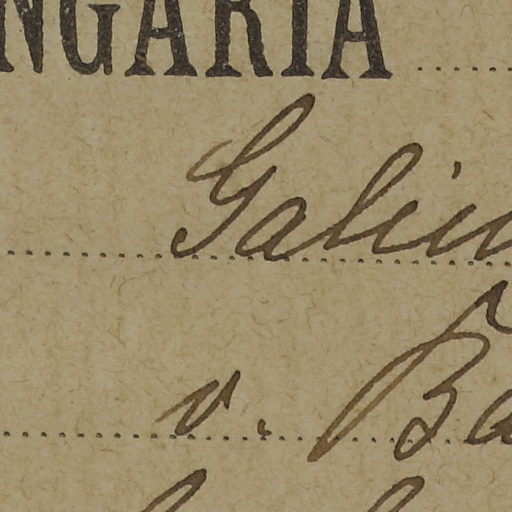 NGARIA
Galiu
v. Ba